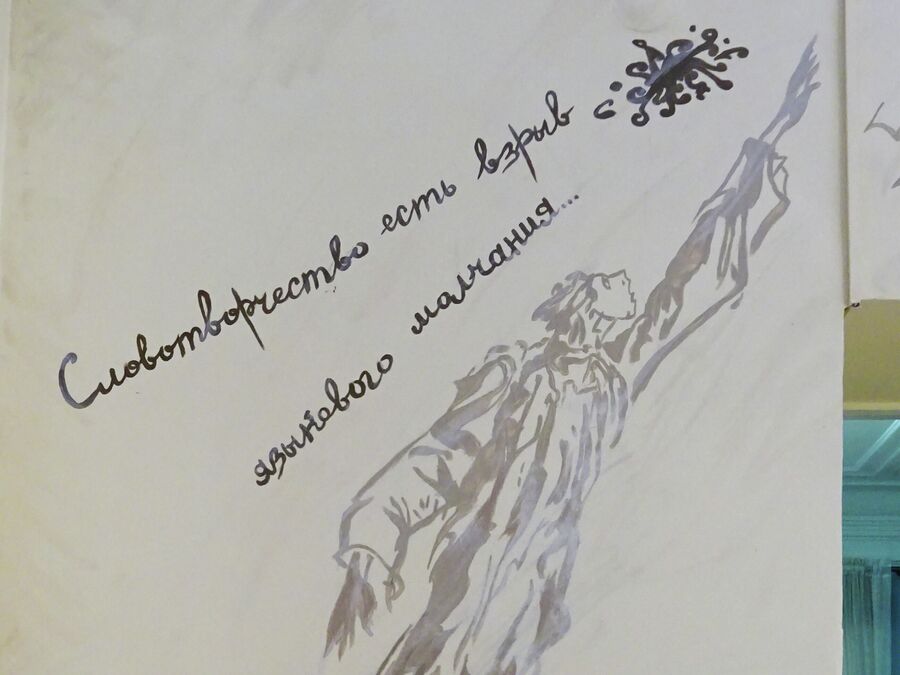 Словотворчество есть взрыв
языкового молчания...